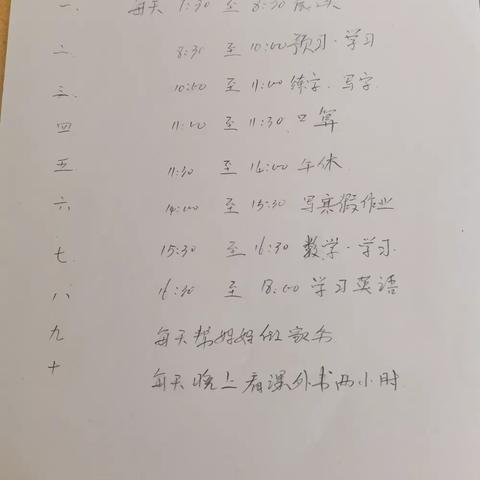 一. 每天 7:30 至 8:30 晨读
二. 8:30 至 10:00 预习·学习
三. 10:00 至 11:00 练字、写字
四 11:00 至 11:30 口算
五. 11:30 至 14:00 午休
六. 14:00 至 15:30 写寒假作业
七. 15:30 至 16:30 数学·学习
八. 16:30 至 18:00 学习英语
九 每天帮妈妈做家务
十 每天晚上看课外书两小时